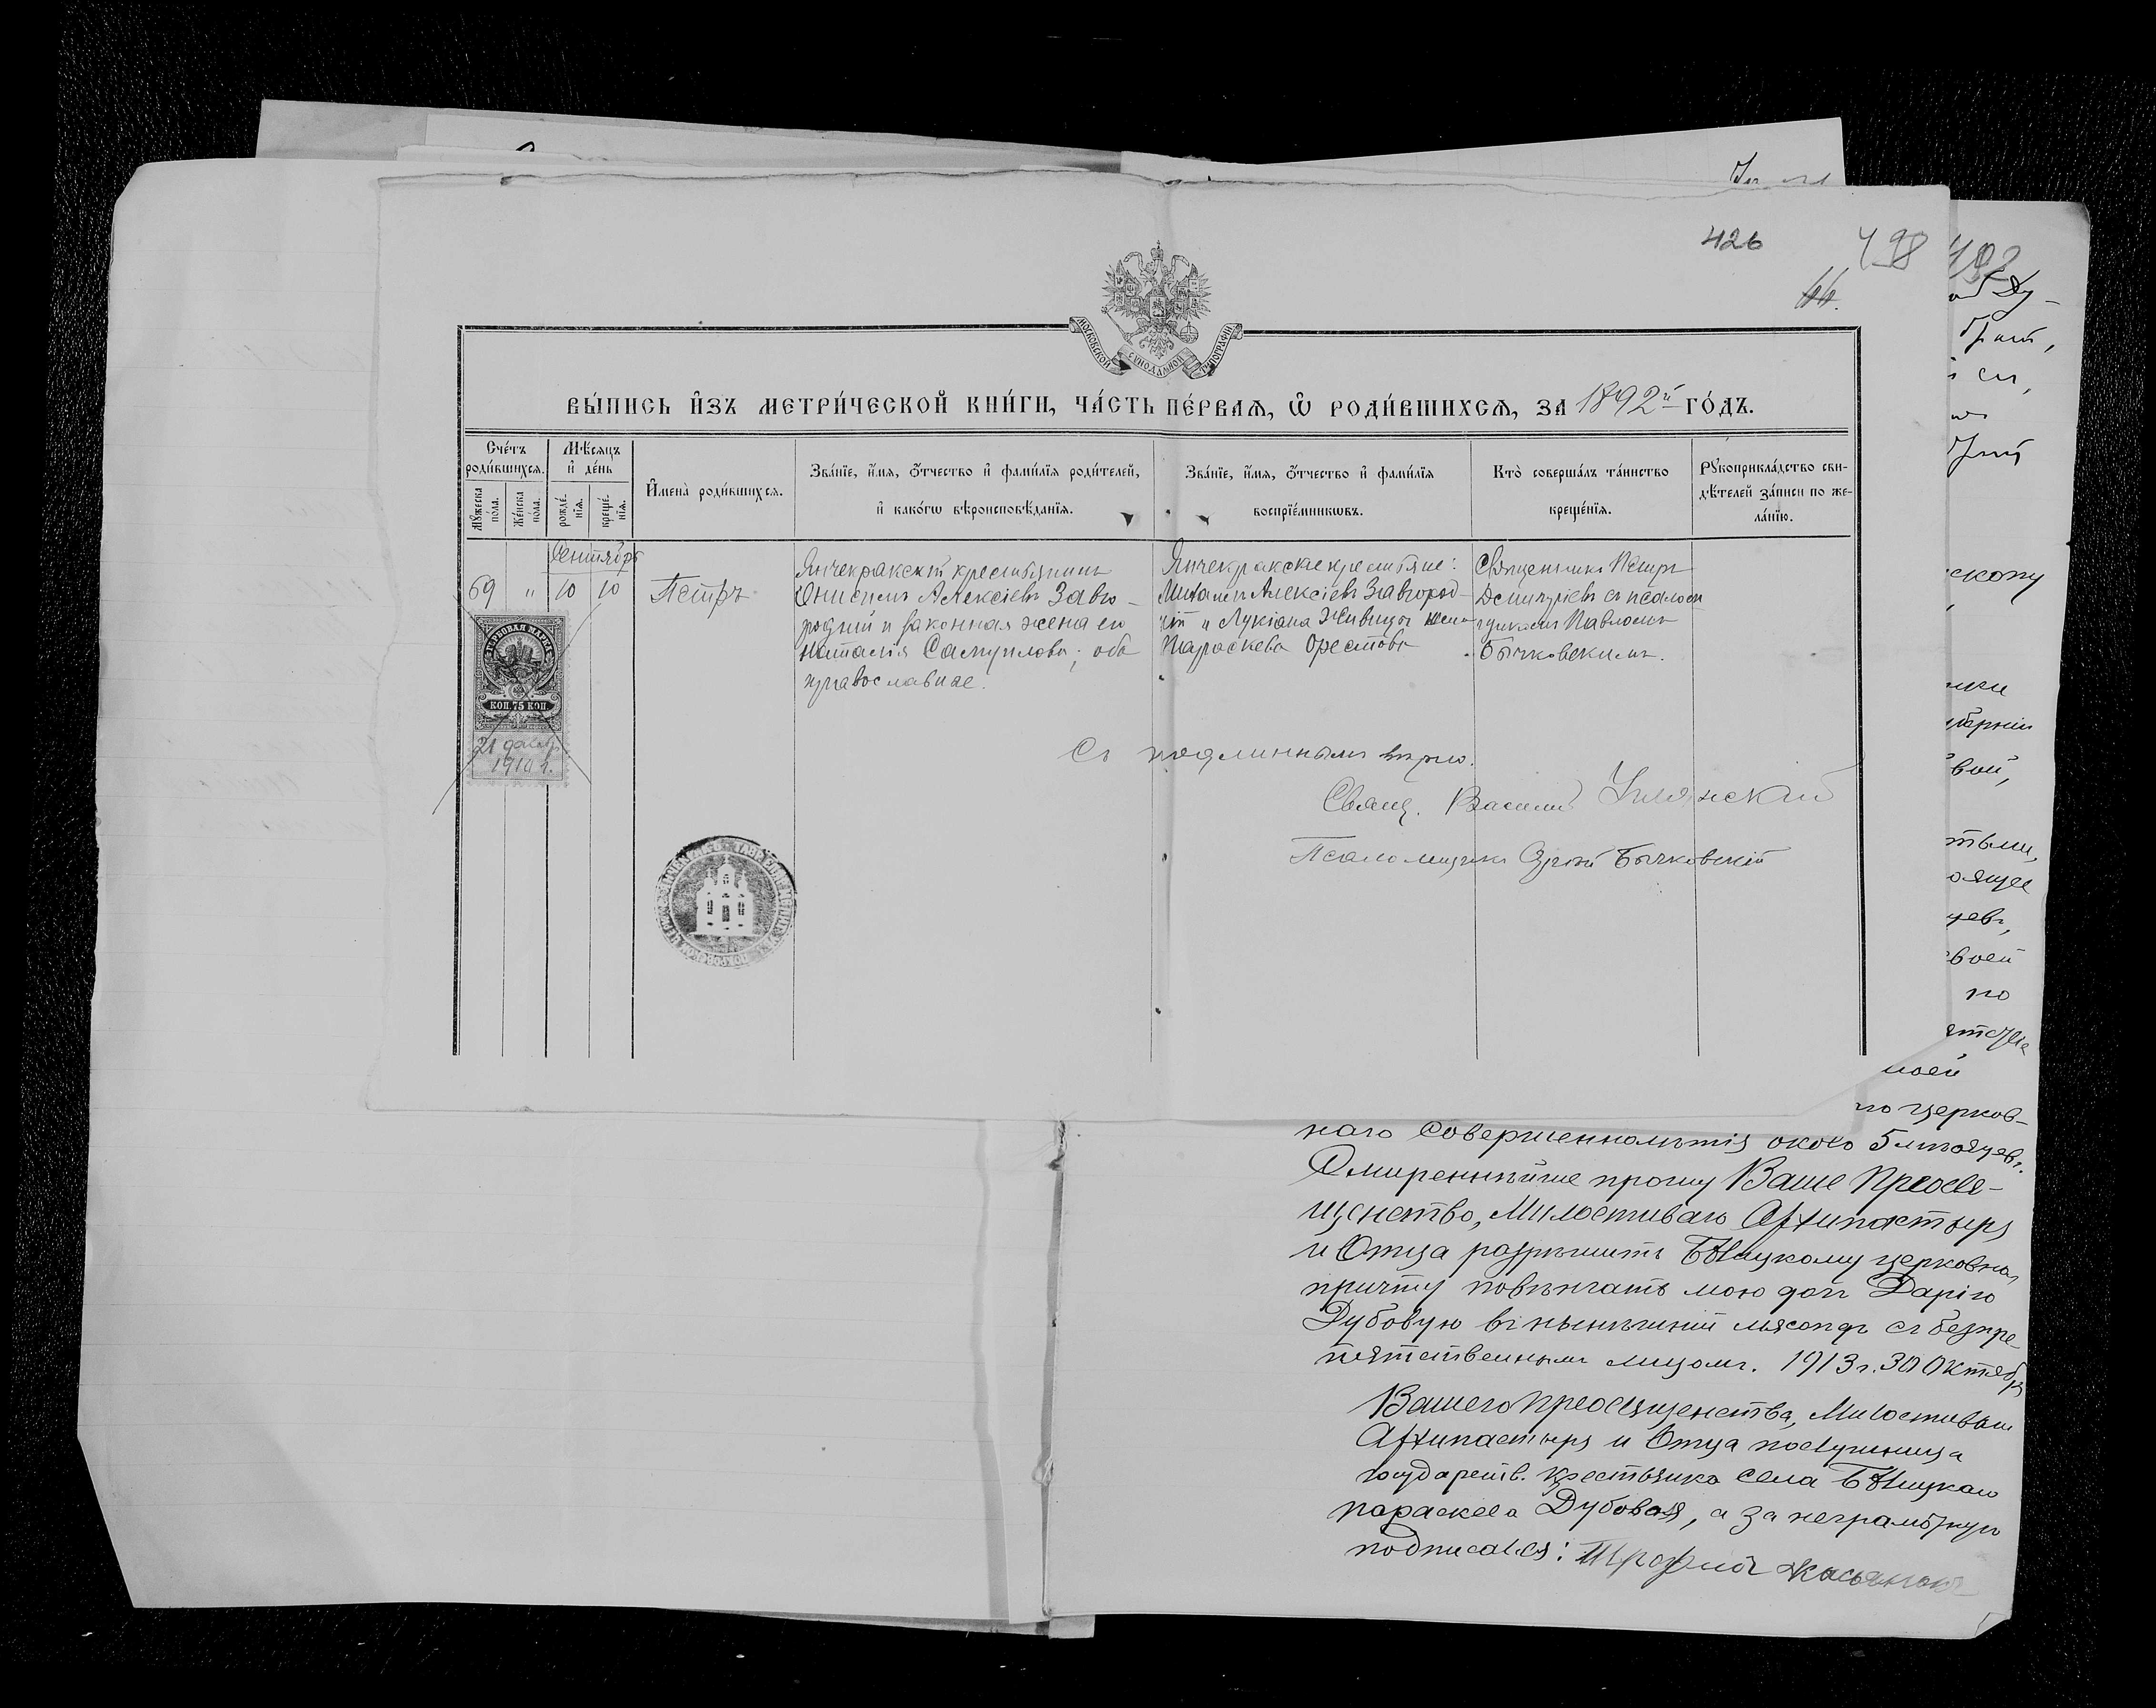 426
498
66.
402
МОСКОВСКОЙ СѴНОДАЛЬНОЙ ТИПОГРАФІИ
ВЫ́ПИСЬ И҆ЗЪ МЕТРИ́ЧЕСКОЙ КНИ́ГИ, ЧА́СТЬ ПЕ́РВАѦ, Ѡ҆ РОДИ́ВШИХСѦ, ЗА 1892й ГО́ДЪ.
Сче́тъ роди́вшихсѧ.
Мꙋ́жеска по́ла.
Же́нска по́ла.
Мѣ́сѧцъ и҆ де́нь
рожде́нїѧ.
креще́нїѧ.
И҆мена̀ роди́вшихсѧ.
Зва́нїе, и҆́мѧ, ѻ҆́тчество и҆ фамилїѧ роди́телей,
и҆ како́гѡ вѣроисповѣ́данїѧ.
Зва́нїе, и҆́мѧ, ѻ҆́тчество и҆ фами́лїѧ
воспрїе́мникѡвъ.
Кто̀ соверша́лъ та́инство
креще́нїѧ.
Рꙋкоприкла́дство сви-
дѣ́телей за́писи по же-
ла́нїю.
Сентябрь
69 " 10 10
Петръ
Янчекракскій крестьянинъ
Онисимъ Алексіевъ Завго-
родній и законная жена его
Наталія Самуилова; оба
православные.
Янчекракскіе крестьяне:
Михаилъ Алексіевъ Завгород-
ній и Лукіана Живицы жена
Параскева Орестова
Священникъ Петръ
Димитріевъ съ псалом-
щикомъ Павломъ
Бычковскимъ.
ГЕРБОВАЯ МАРКА
КОП. 75 КОП.
21 декаб.
1910 г.
Съ подлиннымъ вѣрно.
Свящ. Василій
Псаломщикъ Бычковскій
скому
губерніи
вой,
своей
по
моей
но церков-
наго совершеннолѣтія около 5 мѣсяцевъ.
Смиреннѣйше прошу Ваше Преосвя-
щенство, Милостиваго Архипастыря
и Отца разрѣшить Бѣлицкому церковном
причту повѣнчать мою дочь Дарію
Дубовую въ нынѣшній мясоѣдъ съ безпре-
пятственнымъ лицомъ. 1913 г. 30 Октябр
Вашего Преосвященства, Милостиваго
Архипастыря и Отца послушница
государств. крестьянка села Бѣлицкаго
Параскева Дубовая, а за неграмотную
подписался: Трофимъ Касьяновъ